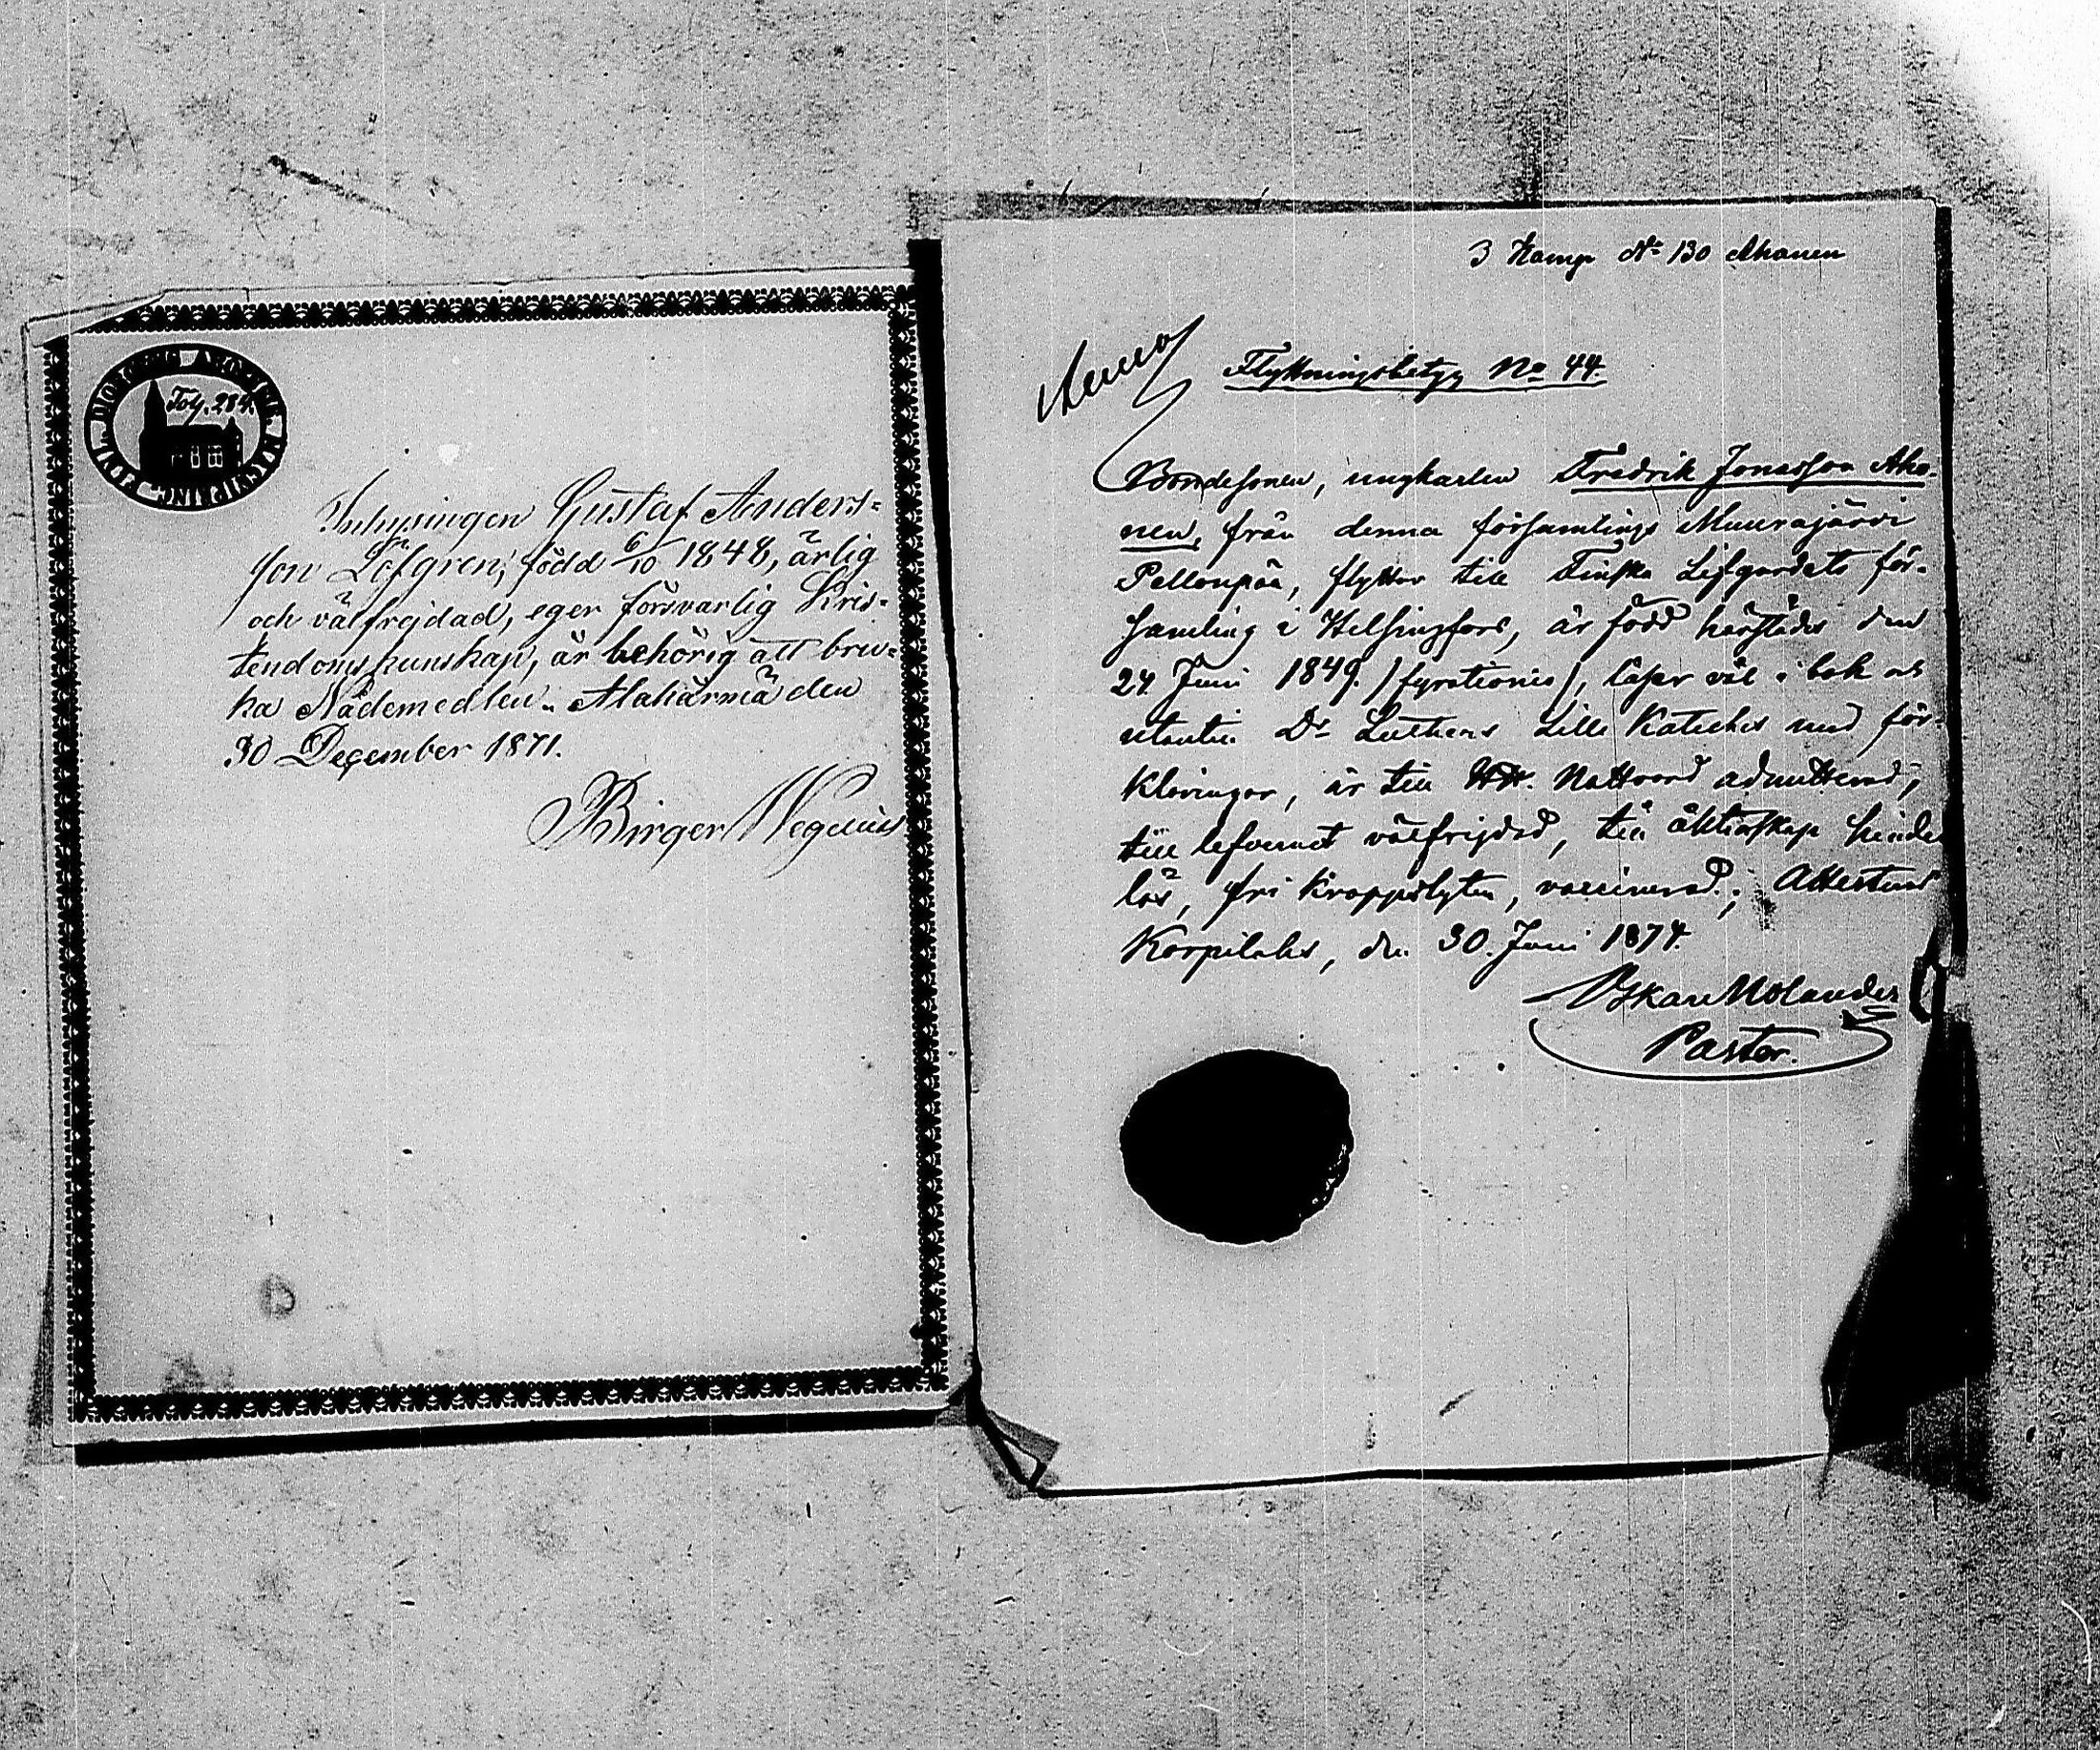 Toly. 284.
Inhysingen Gustaf Anders=
son Löfgren, född 6/10 1848, ärlig
och välfrejdad, eger försvarlig Kris=
tendomskunskap, är behörig att bru=
ka Nådemedlen. Alahärmä den
30 December 1871.
Birger Wegelius
3 Komp No 130 Ahonen
Flyttningsbetyg No 44.
Bondesonen, ungkarlen Fredrik Jonasson Aho-
nen, från denna församlings Muurajärvi
Pellonpää, flyttar till Finska Lifgardets för-
samling i Helsingfors, är född härstädes den
24 Juni 1849. /fyrationio/, läser väl i bok och
utantill Dr Luthers Lilla Katekes med för-
klaringar, är till HH. Nattvard admitterad,
till lefvernet välfrejdad, till äktenskap hinder
lös, fri kroppslyten, vaccinerad; Attesteras
Korpilaks, den 30. Juni 1874.
Oskar Molander
Pastor.